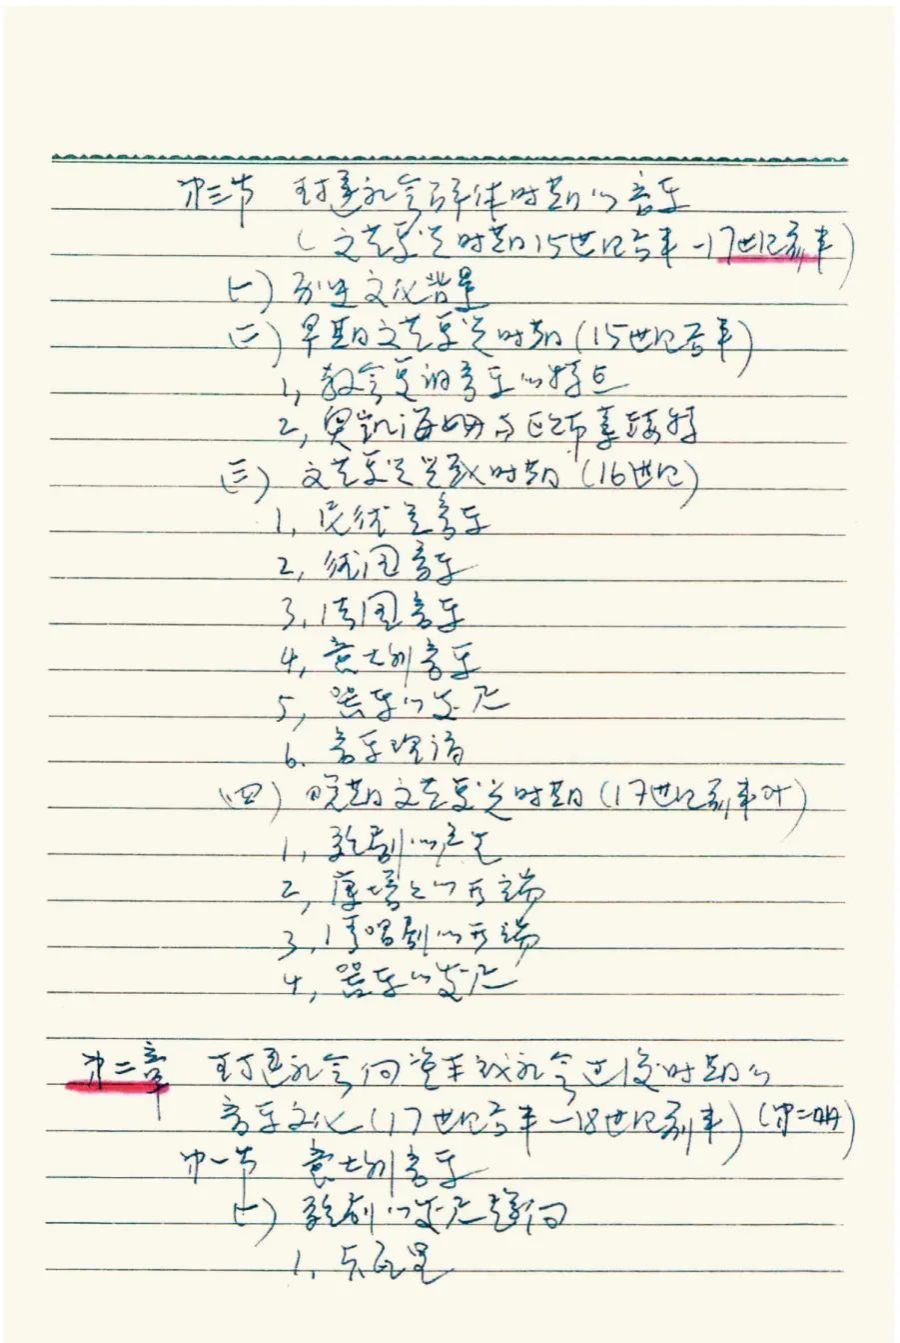 第三节 封建社会解体时期的音乐
(文艺复兴时期15世纪后半-17世纪前半)
(一) 历史文化背景
(二) 早期文艺复兴时期(15世纪后半)
1, 教会复调音乐的特点
2, 奥凯海姆与
(三) 文艺复兴兴盛时期(16世纪)
1, 尼德兰音乐
2, 德国音乐
3, 法国音乐
4, 意大利音乐
5, 器乐的发展
6. 音乐理论
(四) 晚期文艺复兴时期(17世纪前半叶)
1, 歌剧的产生
2, 康塔塔的开端
3, 清唱剧的开端
4, 器乐的发展
第二章 封建社会向资本主义社会过渡时期的
音乐文化(17世纪后半-18世纪前半)(第二册)
第一节 意大利音乐
(一) 歌剧的发展趋向
1,